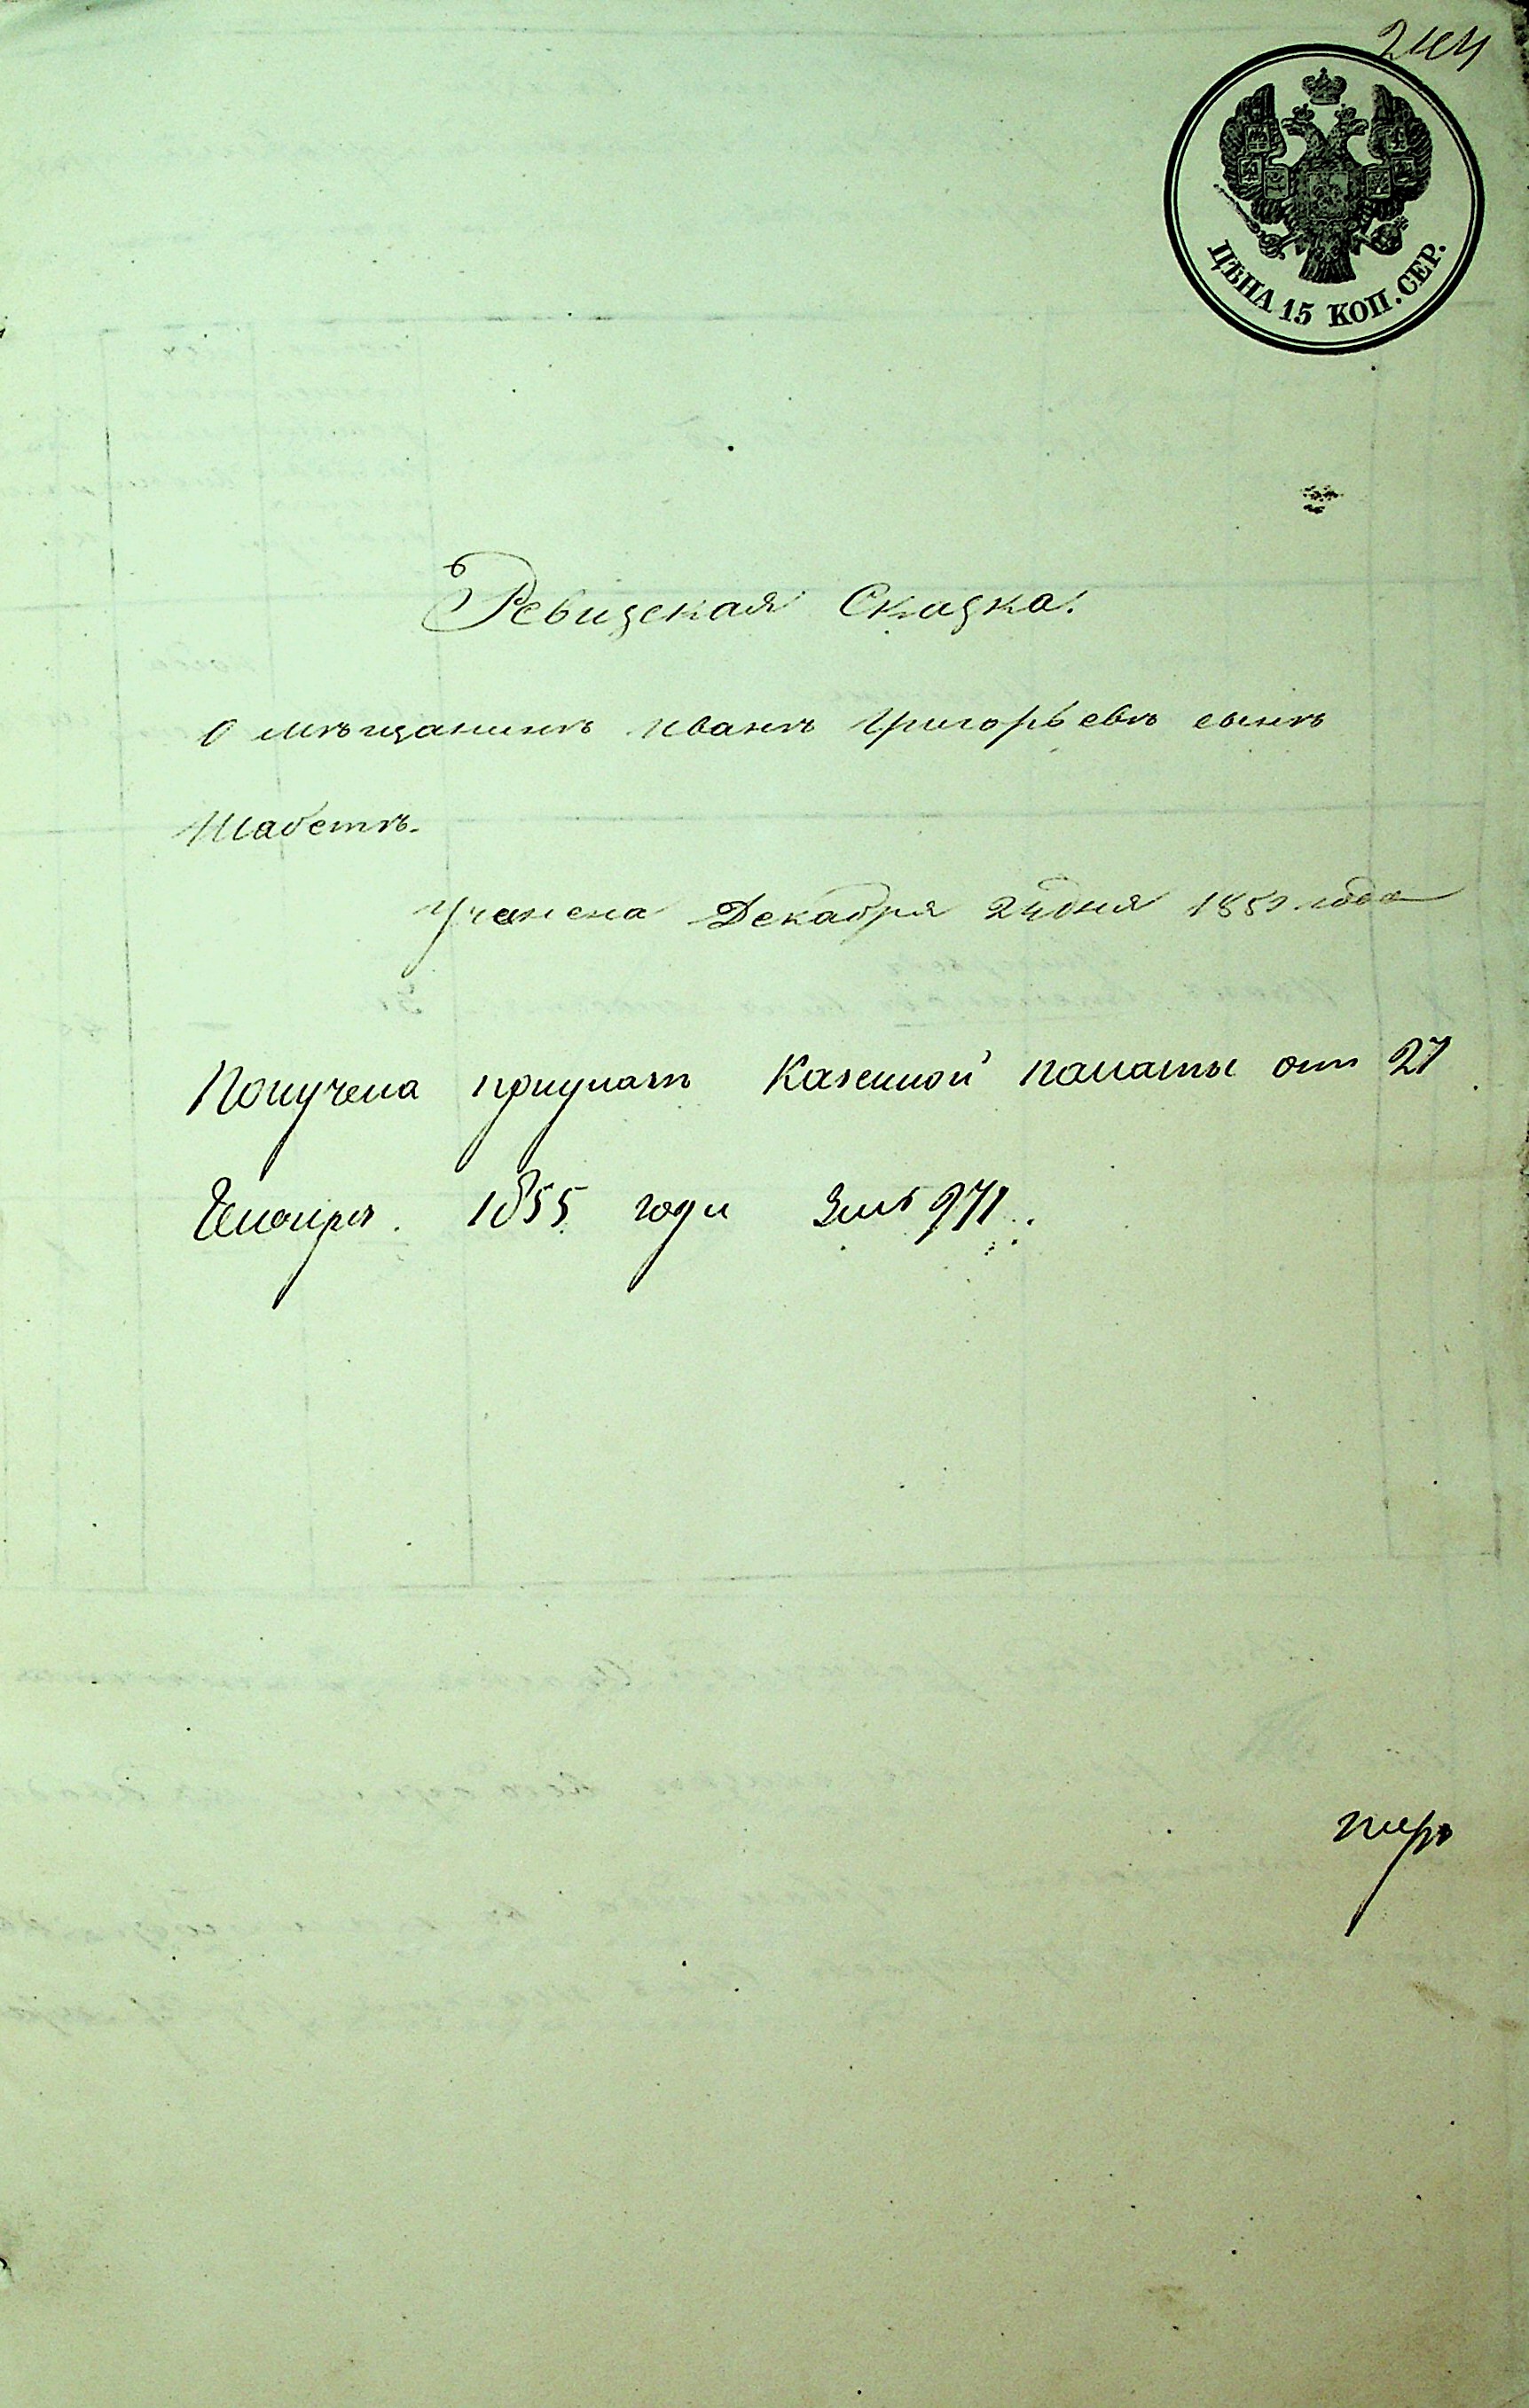 244
ЦѢНА 15 КОП. СЕР.
Ревизская Сказка.
О мѣщанинѣ Иванѣ Григорьевѣ сынѣ
Шабетѣ.
Учинена Декабря 24 дня 185 года
Получена при указѣ Казенной палаты отъ 27
Генваря 1855 года за № 971